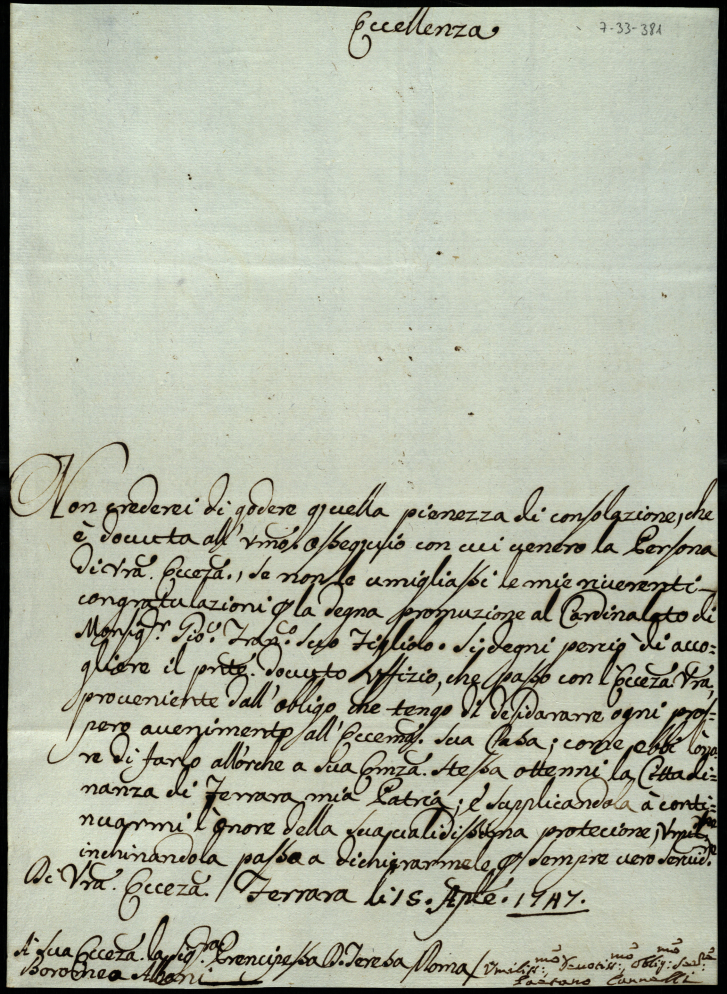 Eccellenza
7-33-381
Non crederei di godere quella pienezza di consolazione, che
è dovuta all' vmo. ossequio con cui venero la Persona
di Vra. Ecceza., se non le umigliassi le mie riverenti
congratulazioni p la degna promuzione al Cardinalato di
Monsigr. Gio. Franco. suo Figliolo. Si degni perciò di acco=
gliere il pnte. dovuto Uffizio, che passo con l'Ecceza. Vra,
proveniente dall' obligo che tengo di desidararre ogni pros=
pero avvenimento all' Eccema. sua Casa; come ebbi l'ono=
re di farlo allorche a sua Emza. stessa ottenni la Cittadi=
nanza di Ferrara mia Patria; e supplicandola à conti=
nuarmi l'onore della sua validissima protecione,
inchinandola passo a dichiararmele p sempre vero servid.
Di Vra. Ecceza. / Ferrara li 15. Aple. 1747.
A sua Ecceza. la Sigra. Prencipessa D. Teresa Roma / Umiliss:mo Devotiss:mo Obblig:mo
Boromea Albani Gaetano